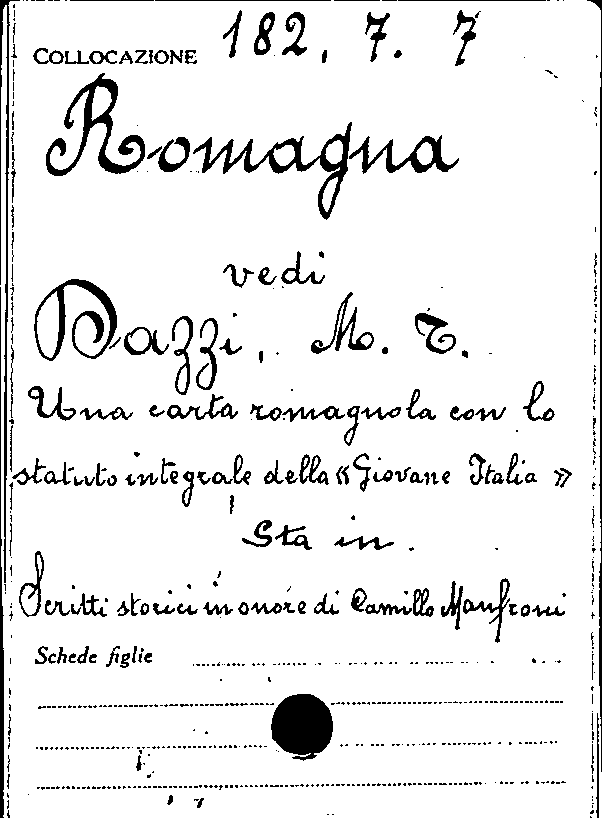 COLLOCAZIONE 182. 7. 7
Romagna
vedi
Dazzi, M. T.
Una carta romagnola con lo
statuto integrale della «Giovane Italia»
Sta in.
Scritti storici in onore di Camillo Manfroni
Schede figlie